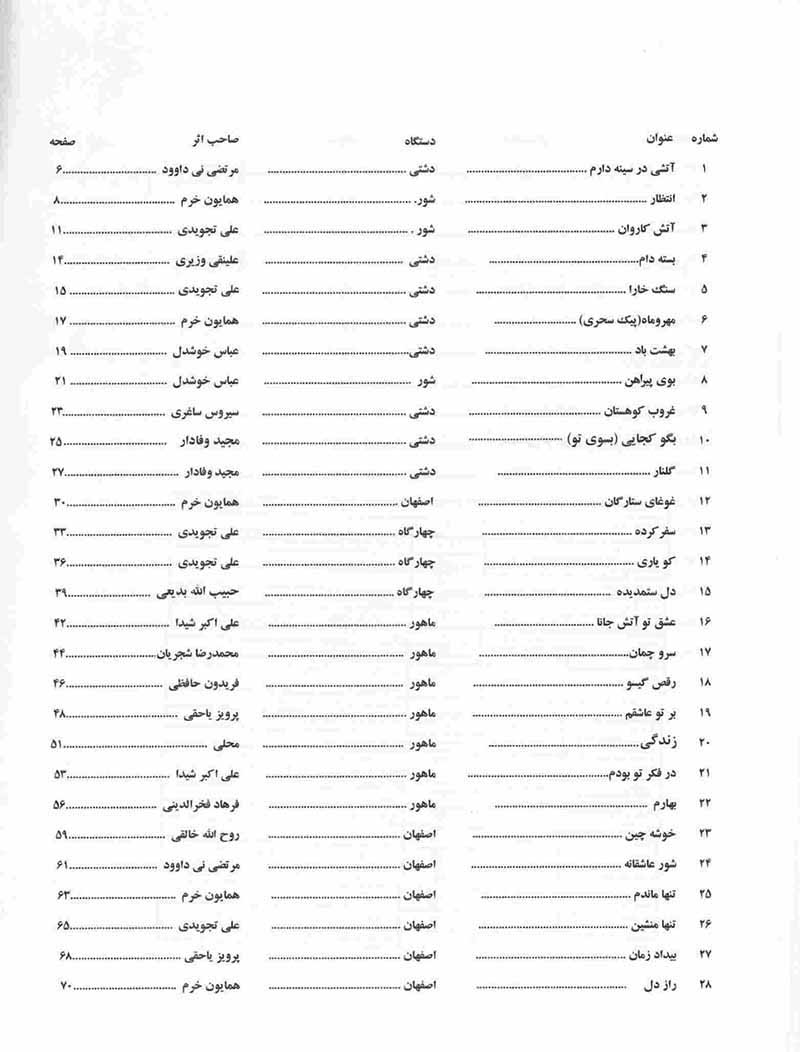 شماره عنوان دستگاه صاحب اثر صفحه
۱ آتشی در سینه دارم ........ دشتی ........ مرتضی نی داوود ........ ۶
۲ انتظار ........ شور ........ همایون خرم ........ ۸
۳ آتش کاروان ........ شور ........ علی تجویدی ........ ۱۱
۴ بسته دام ........ دشتی ........ علینقی وزیری ........ ۱۴
۵ سنگ خارا ........ دشتی ........ علی تجویدی ........ ۱۵
۶ مهروماه(پیک سحری) ........ دشتی ........ همایون خرم ........ ۱۷
۷ بهشت باد ........ دشتی ........ عباس خوشدل ........ ۱۹
۸ بوی پیراهن ........ شور ........ عباس خوشدل ........ ۲۱
۹ غروب کوهستان ........ دشتی ........ سیروس ساغری ........ ۲۳
۱۰ بگو کجایی (بسوی تو) ........ دشتی ........ مجید وفادار ........ ۲۵
۱۱ گلنار ........ دشتی ........ مجید وفادار ........ ۲۷
۱۲ غوغای ستارگان ........ اصفهان ........ همایون خرم ........ ۳۰
۱۳ سفر کرده ........ چهارگاه ........ علی تجویدی ........ ۳۳
۱۴ کو یاری ........ چهارگاه ........ علی تجویدی ........ ۳۶
۱۵ دل ستمدیده ........ چهارگاه ........ حبیب الله بدیعی ........ ۳۹
۱۶ عشق تو آتش جانا ........ ماهور ........ علی اکبر شیدا ........ ۴۲
۱۷ سرو چمان ........ ماهور ........ محمدرضا شجریان ........ ۴۴
۱۸ رقص گیسو ........ ماهور ........ فریدون حافظی ........ ۴۶
۱۹ بر تو عاشقم ........ ماهور ........ پرویز یاحقی ........ ۴۸
۲۰ زندگی ........ ماهور ........ محلی ........ ۵۱
۲۱ در فکر تو بودم ........ ماهور ........ علی اکبر شیدا ........ ۵۳
۲۲ بهارم ........ ماهور ........ فرهاد فخرالدینی ........ ۵۶
۲۳ خوشه چین ........ اصفهان ........ روح الله خالقی ........ ۵۹
۲۴ شور عاشقانه ........ اصفهان ........ مرتضی نی داوود ........ ۶۱
۲۵ تنها ماندم ........ اصفهان ........ همایون خرم ........ ۶۳
۲۶ تنها منشین ........ اصفهان ........ علی تجویدی ........ ۶۵
۲۷ بیداد زمان ........ اصفهان ........ پرویز یاحقی ........ ۶۸
۲۸ راز دل ........ اصفهان ........ همایون خرم ........ ۷۰